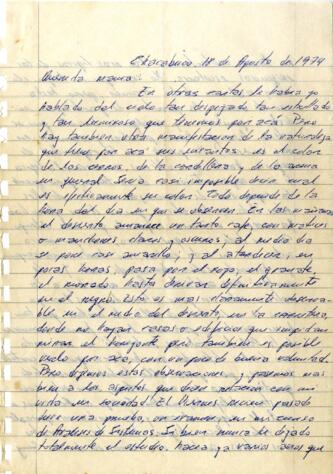 Chacabuco, 18 de Agosto de 1974
Querida mamá:
En otras cartas te había ya
hablado del cielo tan despejado tan estrellado
y tan luminoso que tenemos por acá. Pero
hay también otra manifestación de la naturaleza
que tiene por acá sus variantes: es el color
de los cerros, de la cordillera y de la arena
en general. Sería casi imposible decir cual
es efectivamente su color. Todo depende de la
hora del día en que se observen. En las mañanas
el desierto amanece un tanto café, con matices
o manchones claros y oscuros; al medio día
se pone casi amarillo; y al atardecer, en
pocas horas, pasa por el rojo, el granate,
el morado hasta derivar definitivamente
en el negro. Esto es más claramente observa-
ble en el medio del desierto, en la carretera,
donde no hayan casas o edificios que impidan
mirar el horizonte pero también es posible
verlo por acá, con un poco de buena voluntad.
Pero dejemos estas observaciones y pasemos más
bien a los aspectos que dicen relación con mi
vida en sociedad. El Viernes recién pasado
tuve una prueba, un examen, en mi curso
de Análisis de Sistemas. En buena manera he dejado
totalmente el estudio, hacía ya varios años que